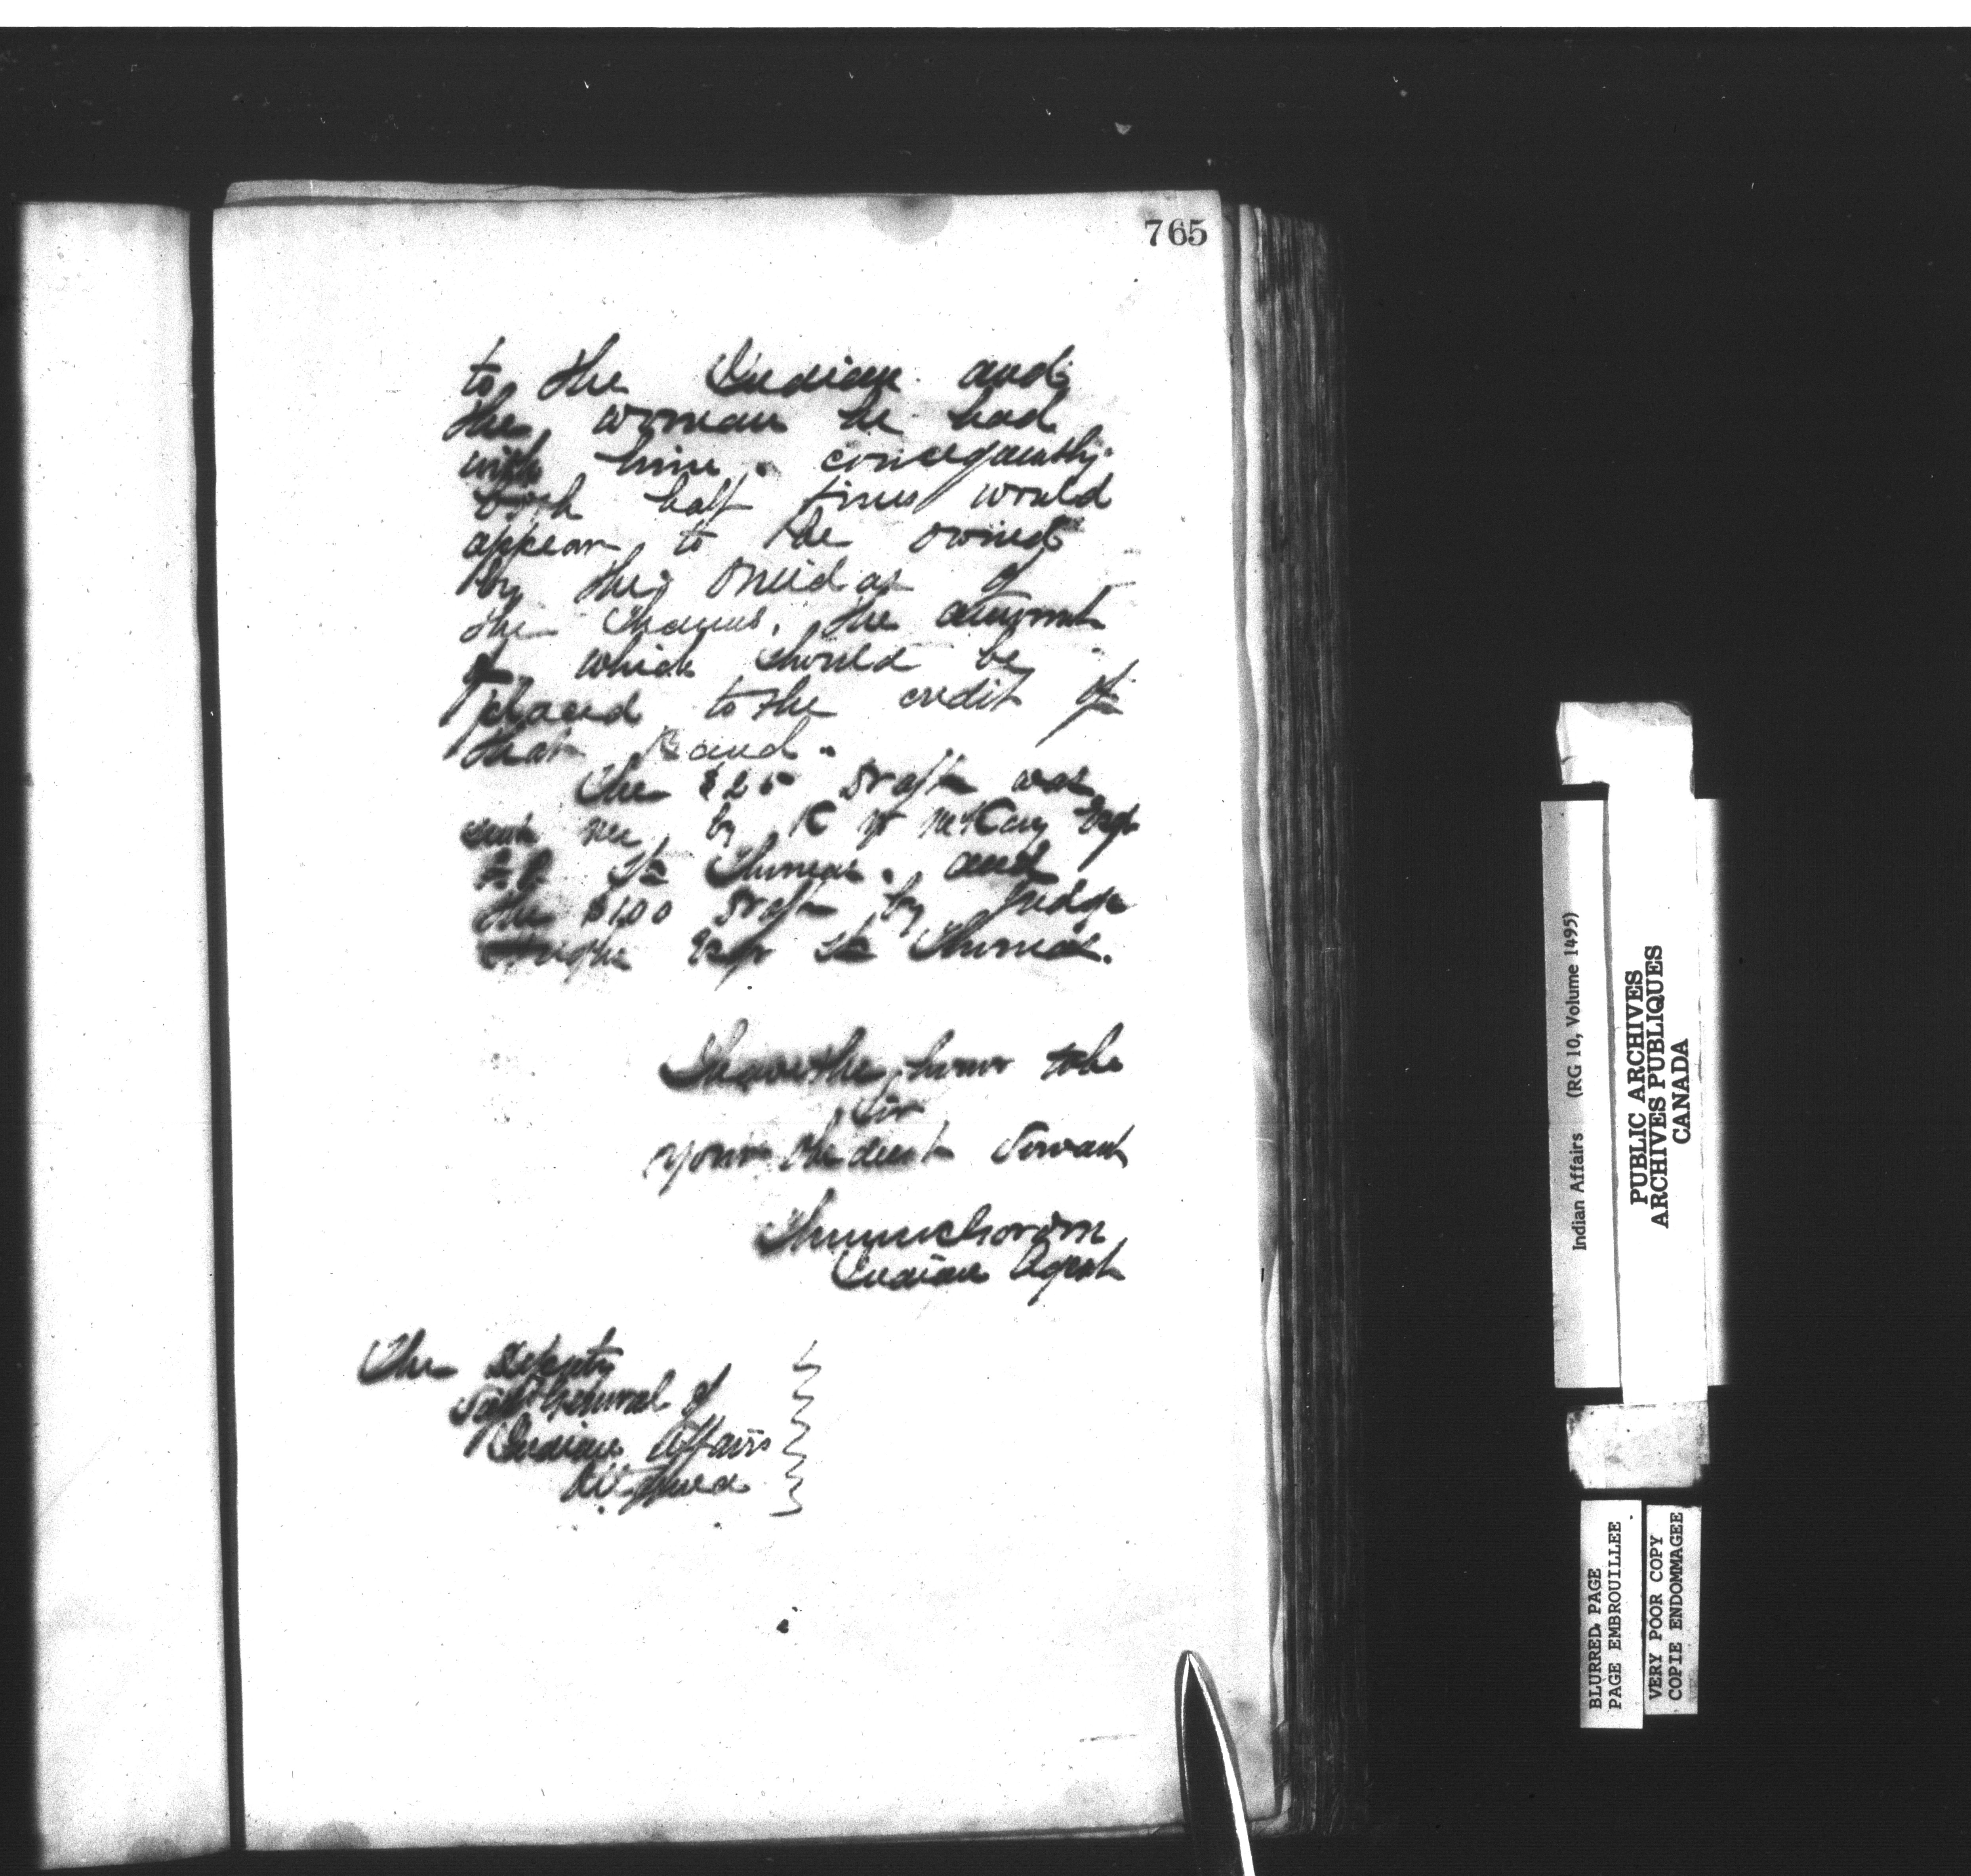 765
to the Indian and
the woman he had
with him. consequently
both half fines would
appear to be owned
by the Oneidas of
the Thames, the amount
of which should be
placed to the credit of
that Band.
The $25 draft was
sent me by K McKay Esq
St Thomas. and
the $100 draft by Judge
Hughes Esqr St Thomas.
I have the honor to be
Sir
your Obedient Servant
Indian Agent
The Deputy
Supt General of
Indian Affairs
Ottawa
Indian Affairs (RG 10, Volume 1495)
PUBLIC ARCHIVES
ARCHIVES PUBLIQUES
CANADA
BLURRED PAGE
PAGE EMBROUILLEE
VERY POOR COPY
COPIE ENDOMMAGEE